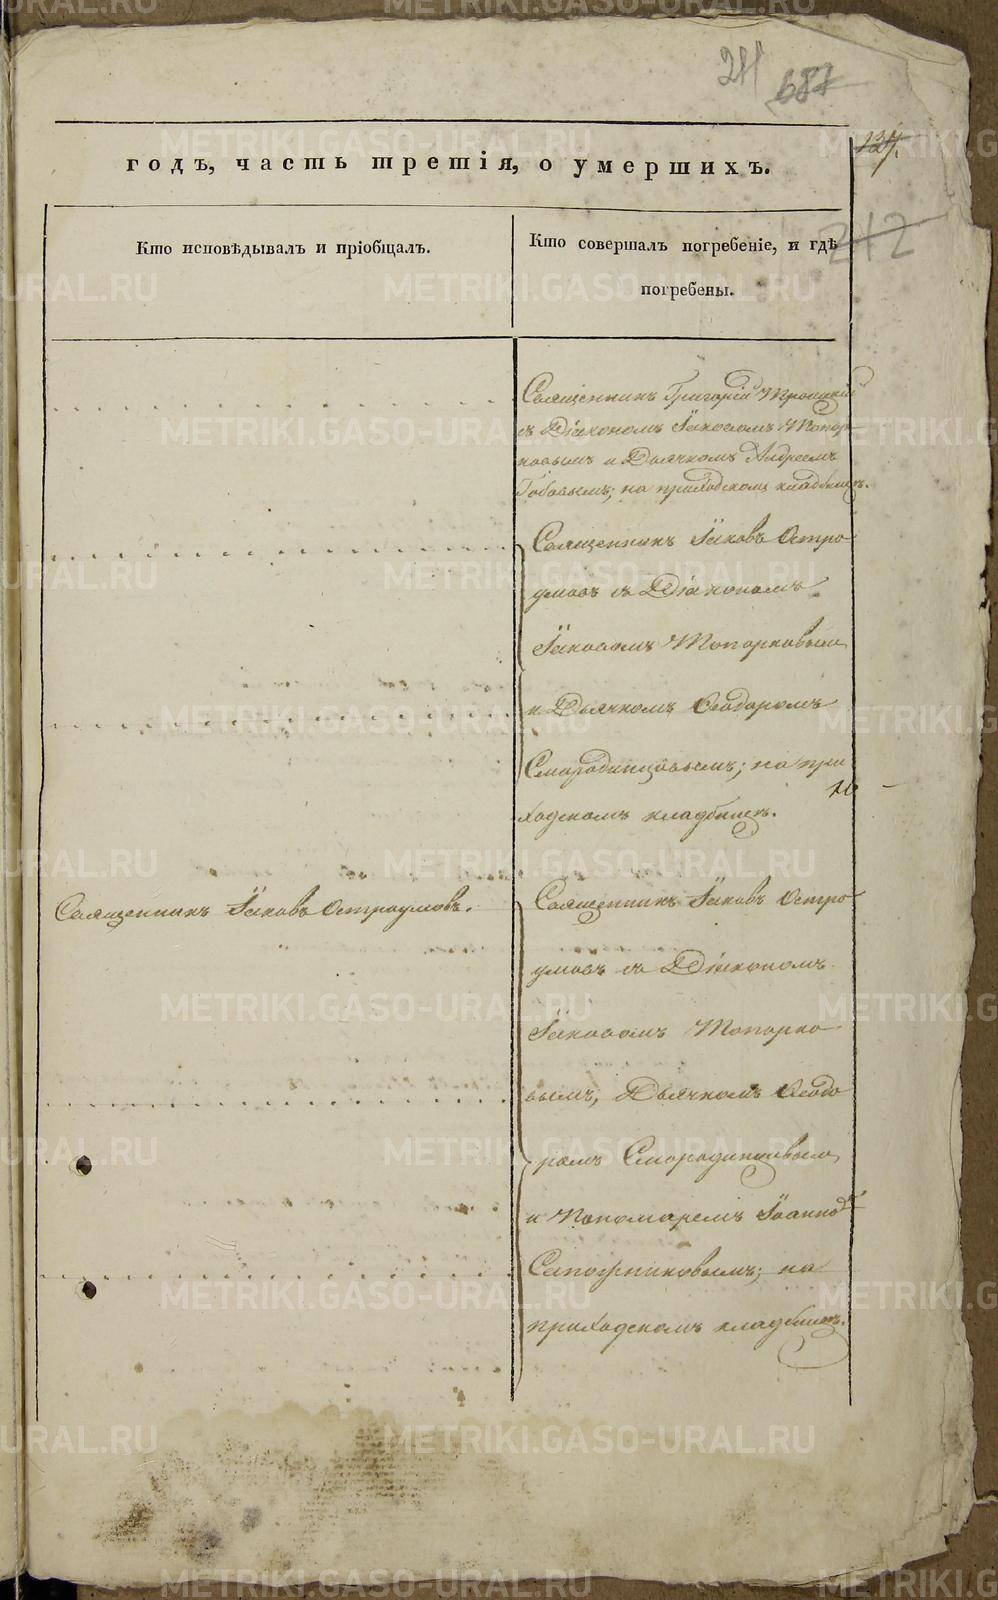 211 687
137.
годъ, часть третія, о умершихъ.
212
Кто исповѣдывалъ и пріобщалъ.
Кто совершалъ погребеніе, и гдѣ
погребены.
Священникъ Григорій Троицкій
съ Діакономъ Іаковомъ Топор-
ковымъ и Дьячкомъ Андреемъ
на приходскомъ кладбищѣ.
Священникъ Іаковъ Остро
умовъ съ Діакономъ
Іаковомъ Топорковымъ
и Дьячкомъ Ѳеодоромъ
Смородинцовымъ; на при
ходскомъ кладбищѣ.
Священникъ Іаковъ Остроумовъ.
Священникъ Іаковъ Остро
умовъ съ Діакономъ
Іаковомъ Топорко
вымъ, Дьячкомъ Ѳеодо
ромъ Смородинцовымъ
и Пономаремъ Іоанно
Сапожниковымъ; на
приходскомъ кладбищѣ.
METRIKI.GASO-URAL.RU